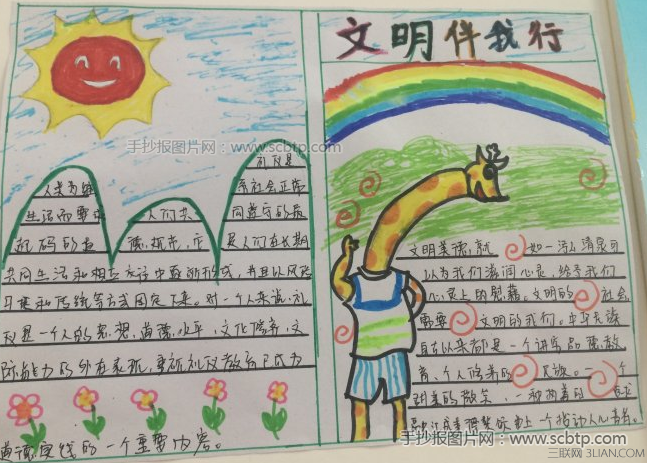 文明伴我行
手抄报图片网 - www.scbtp.com
礼仪是
人类为维
系社会正常
生活而要求
人们共
同遵守的最
起码的道
德规范,它
是人们在长期
共同生活和相互交往中逐渐形成,并且以风俗
习惯和传统等方式固定下来。对一个人来说,礼
仪是一个人的思想道德水平、文化修养、交
际能力的外在表现,重视礼仪教育已成为
道德实践的一个重要内容。
文明美德,就如一汪清泉可
以为我们滋润心灵,给予我们
心灵上的慰藉。文明的社会
需要文明的我们。中华民族
自古以来都是一个讲究品德教
育、个人修养的民族。一个
甜美的微笑、一
一个
手抄报图片网 - www.scbtp.com
三联网 3LIAN.COM